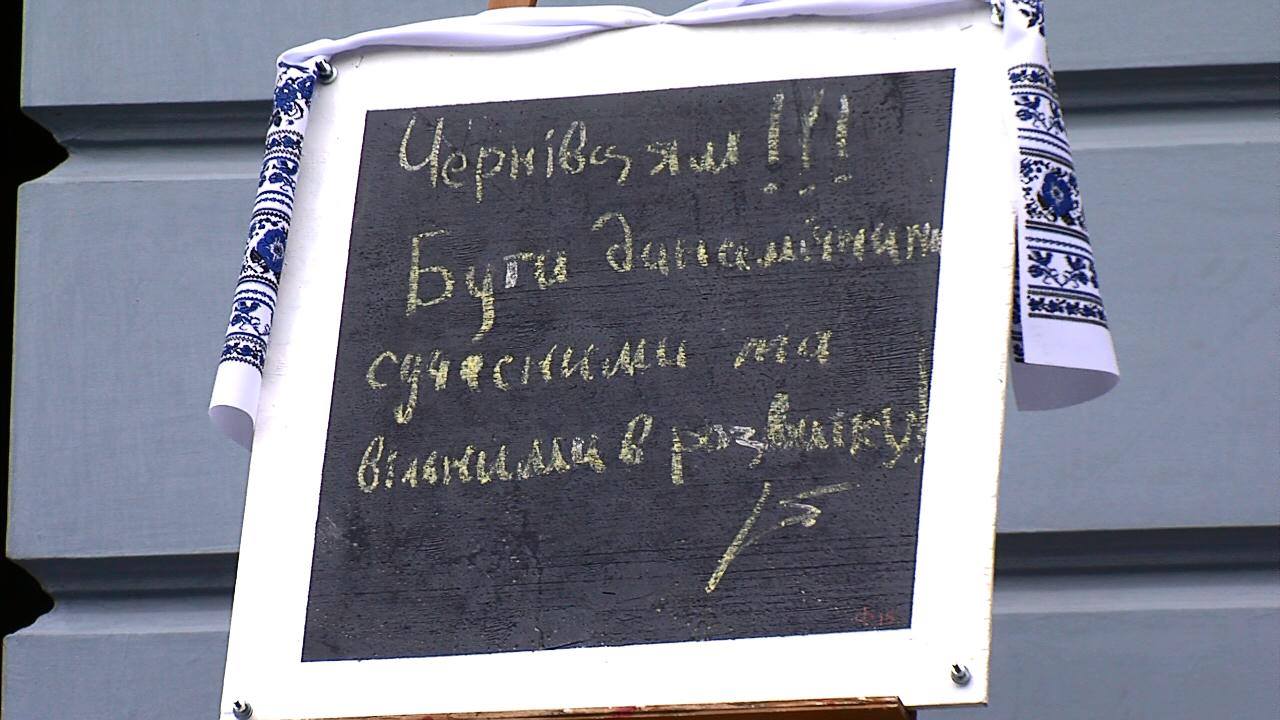 Чернівцям!!!
Бути динамічними
сучасними та
вільними в розвитку!